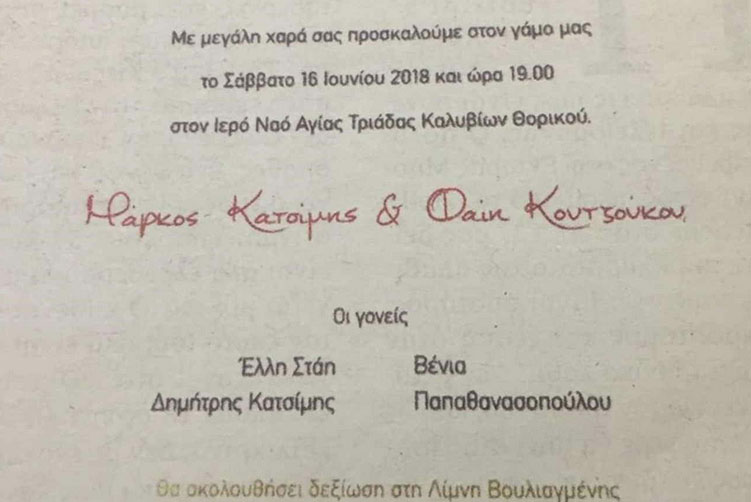 Με μεγάλη χαρά σας προσκαλούμε στον γάμο μας
το Σάββατο 16 Ιουνίου 2018 και ώρα 19.00
στον Ιερό Ναό Αγίας Τριάδας Καλυβίων Θορικού.
Μάρκος Κατσίμης & Φαίη Κουτζούκου
Οι γονείς
Έλλη Στάη Βένια
Δημήτρης Κατσίμης Παπαθανασοπούλου
Θα ακολουθήσει δεξίωση στη Λίμνη Βουλιαγμένης